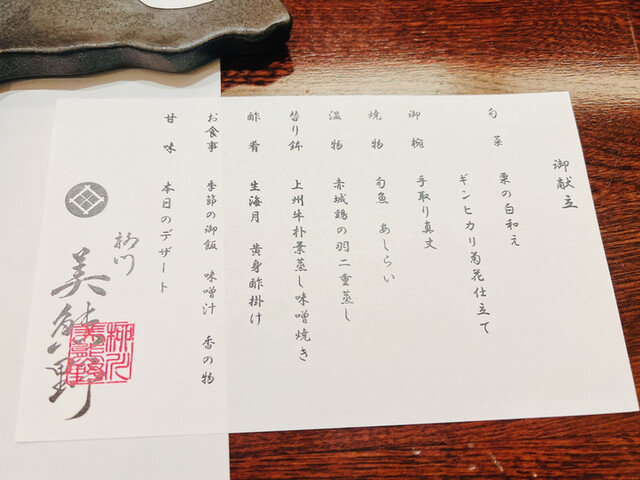 御献立
旬菜 栗の白和え
ギンヒカリ菊花仕立て
御椀 手取り真丈
焼物 旬魚 あしらい
温物 赤城鶏の羽二重蒸し
替り鉢 上州牛朴葉蒸し味噌焼き
酢肴 生海月 黄身酢掛け
お食事 季節の御飯 味噌汁 香の物
甘味 本日のデザート
柳川
美能野
柳川美能野